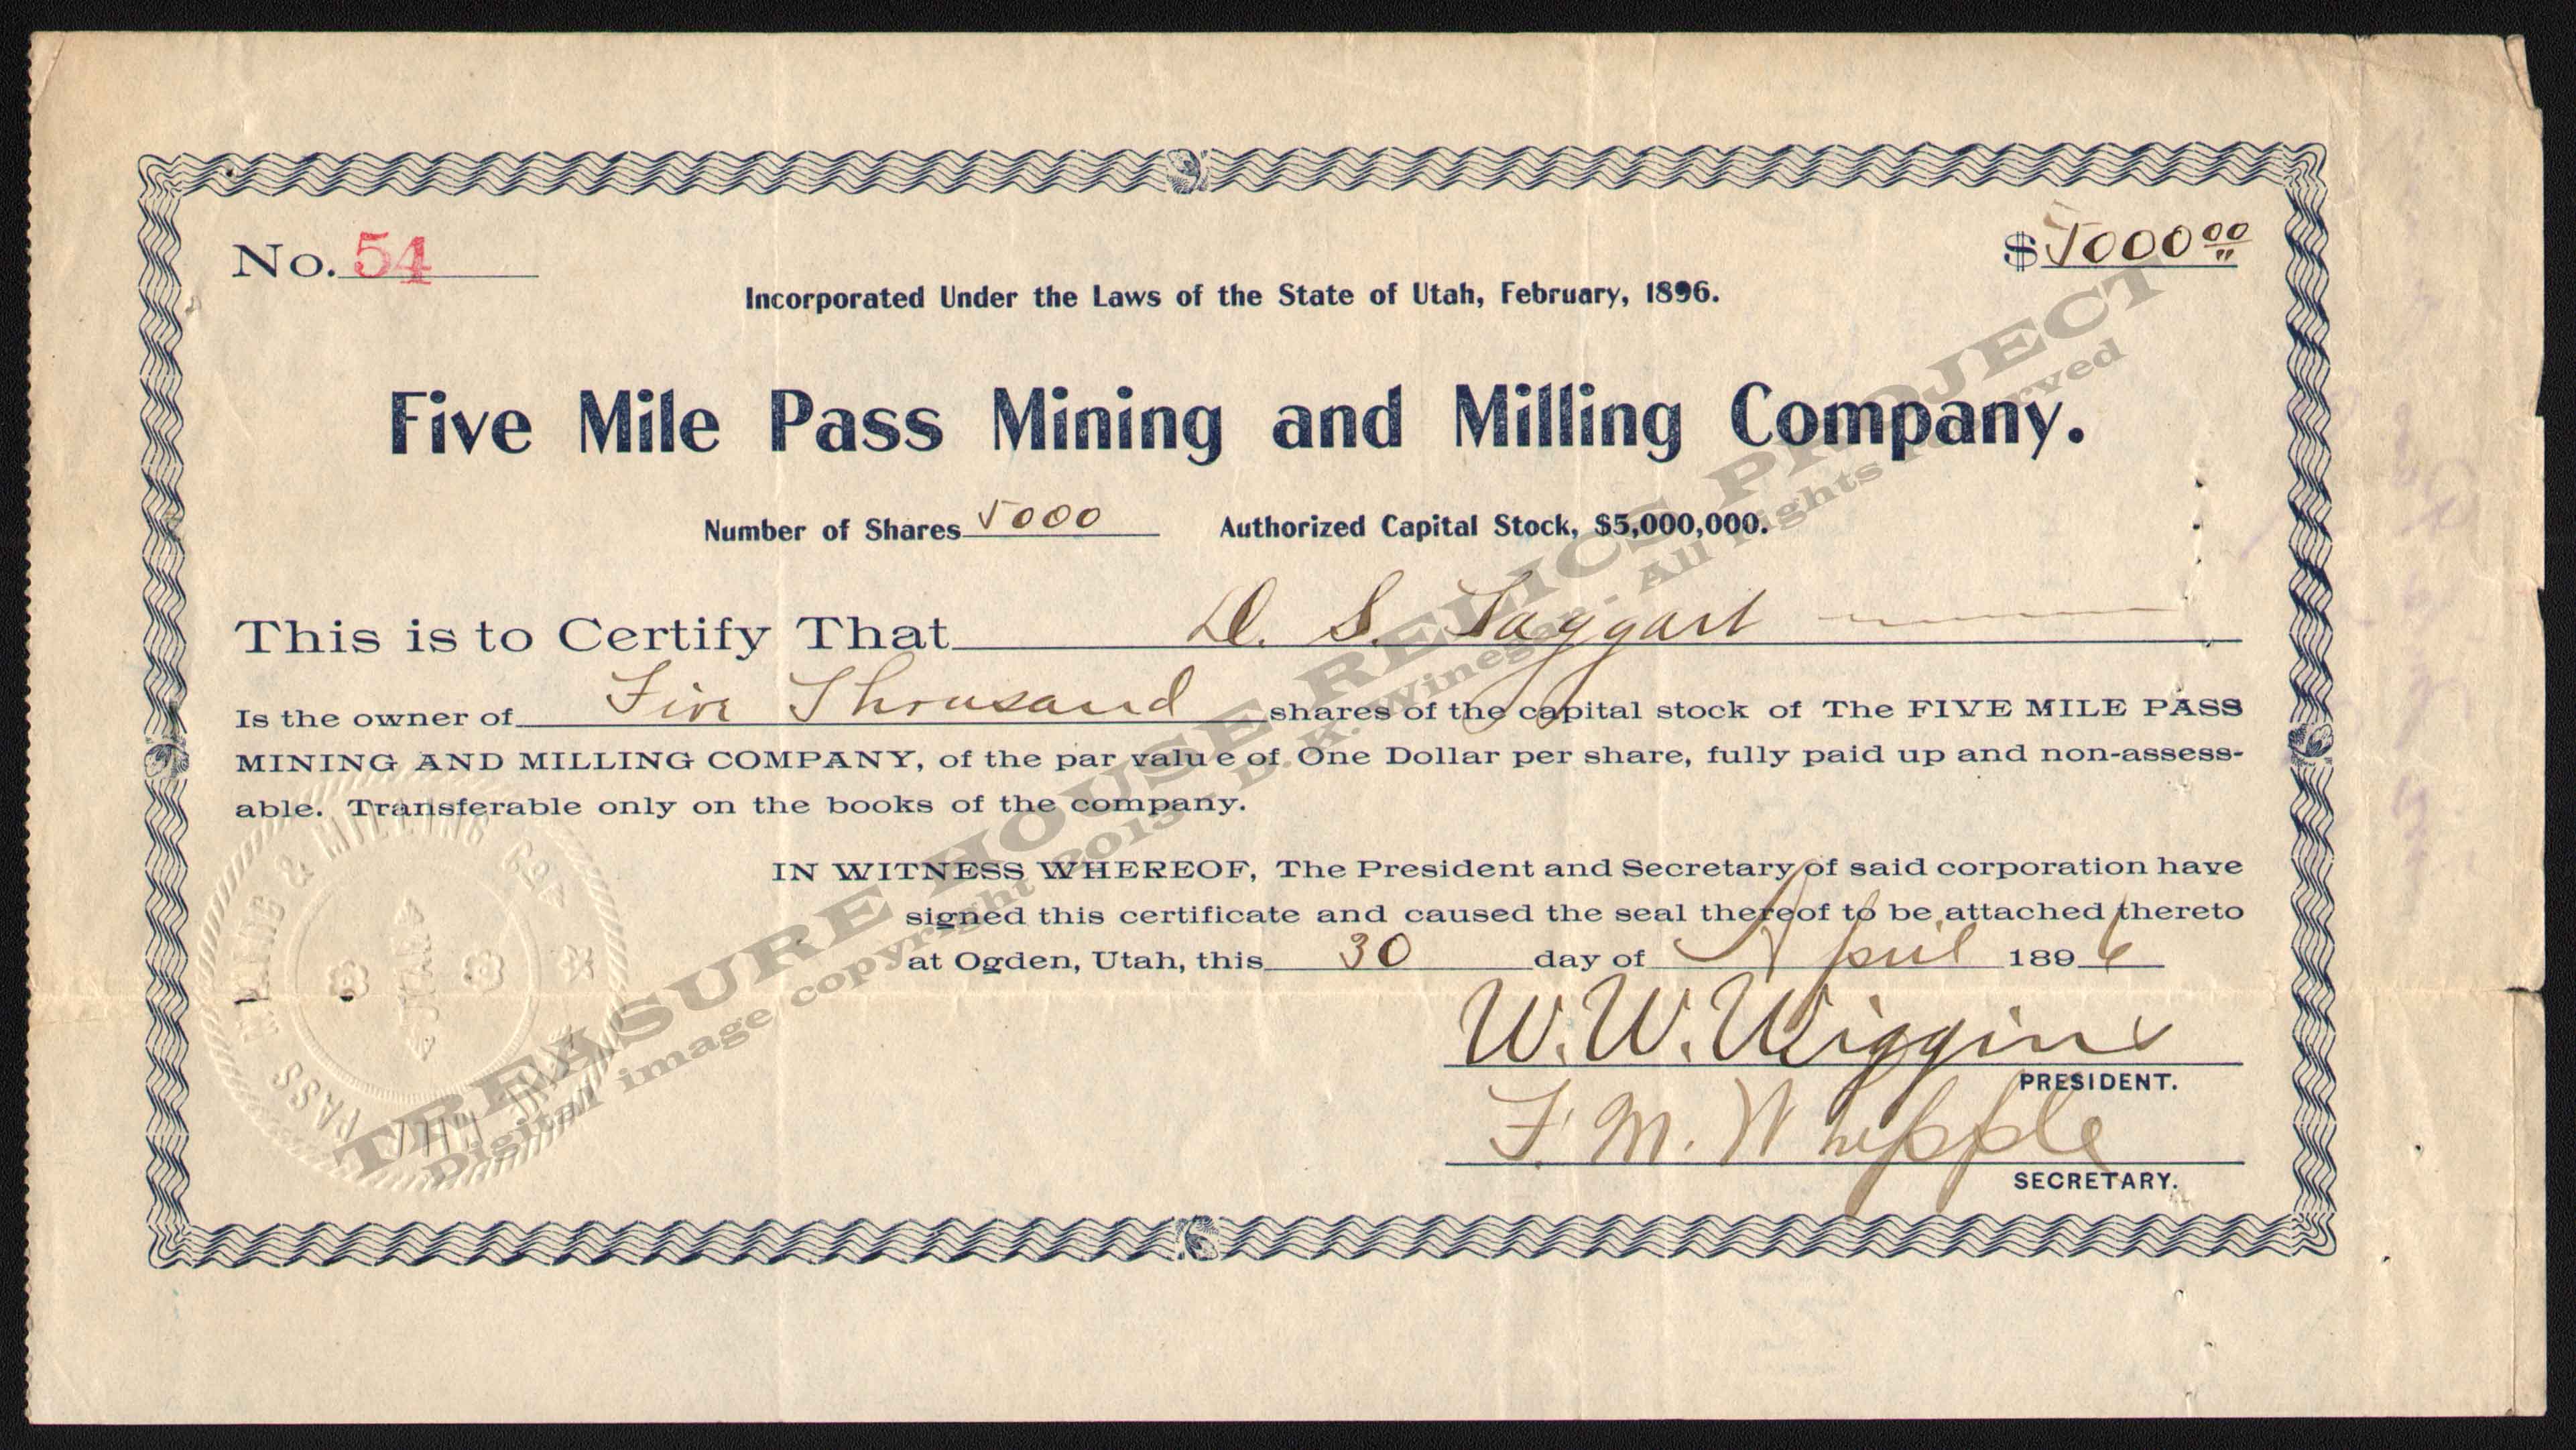 No. 54
$5000 00
Incorporated Under the Laws of the State of Utah, February, 1896.
Five Mile Pass Mining and Milling Company.
Number of Shares 5000 Authorized Capital Stock, $5,000,000.
This is to Certify That D. S. Taggart
Is the owner of Five Thousand shares of the capital stock of The FIVE MILE PASS
MINING AND MILLING COMPANY, of the par value of One Dollar per share, fully paid up and non-assess-
able. Transferable only on the books of the company.
IN WITNESS WHEREOF, The President and Secretary of said corporation have
signed this certificate and caused the seal thereof to be attached thereto
at Ogden, Utah, this 30 day of April 1896
W. W. Wiggins
PRESIDENT.
F. M. Whipple
SECRETARY.
PASS MINING & MILLING Co.
UTAH
TREASURE HOUSE RELICS PROJECT
Digital image copyright 2013 - D. K. Winegar - All Rights Reserved